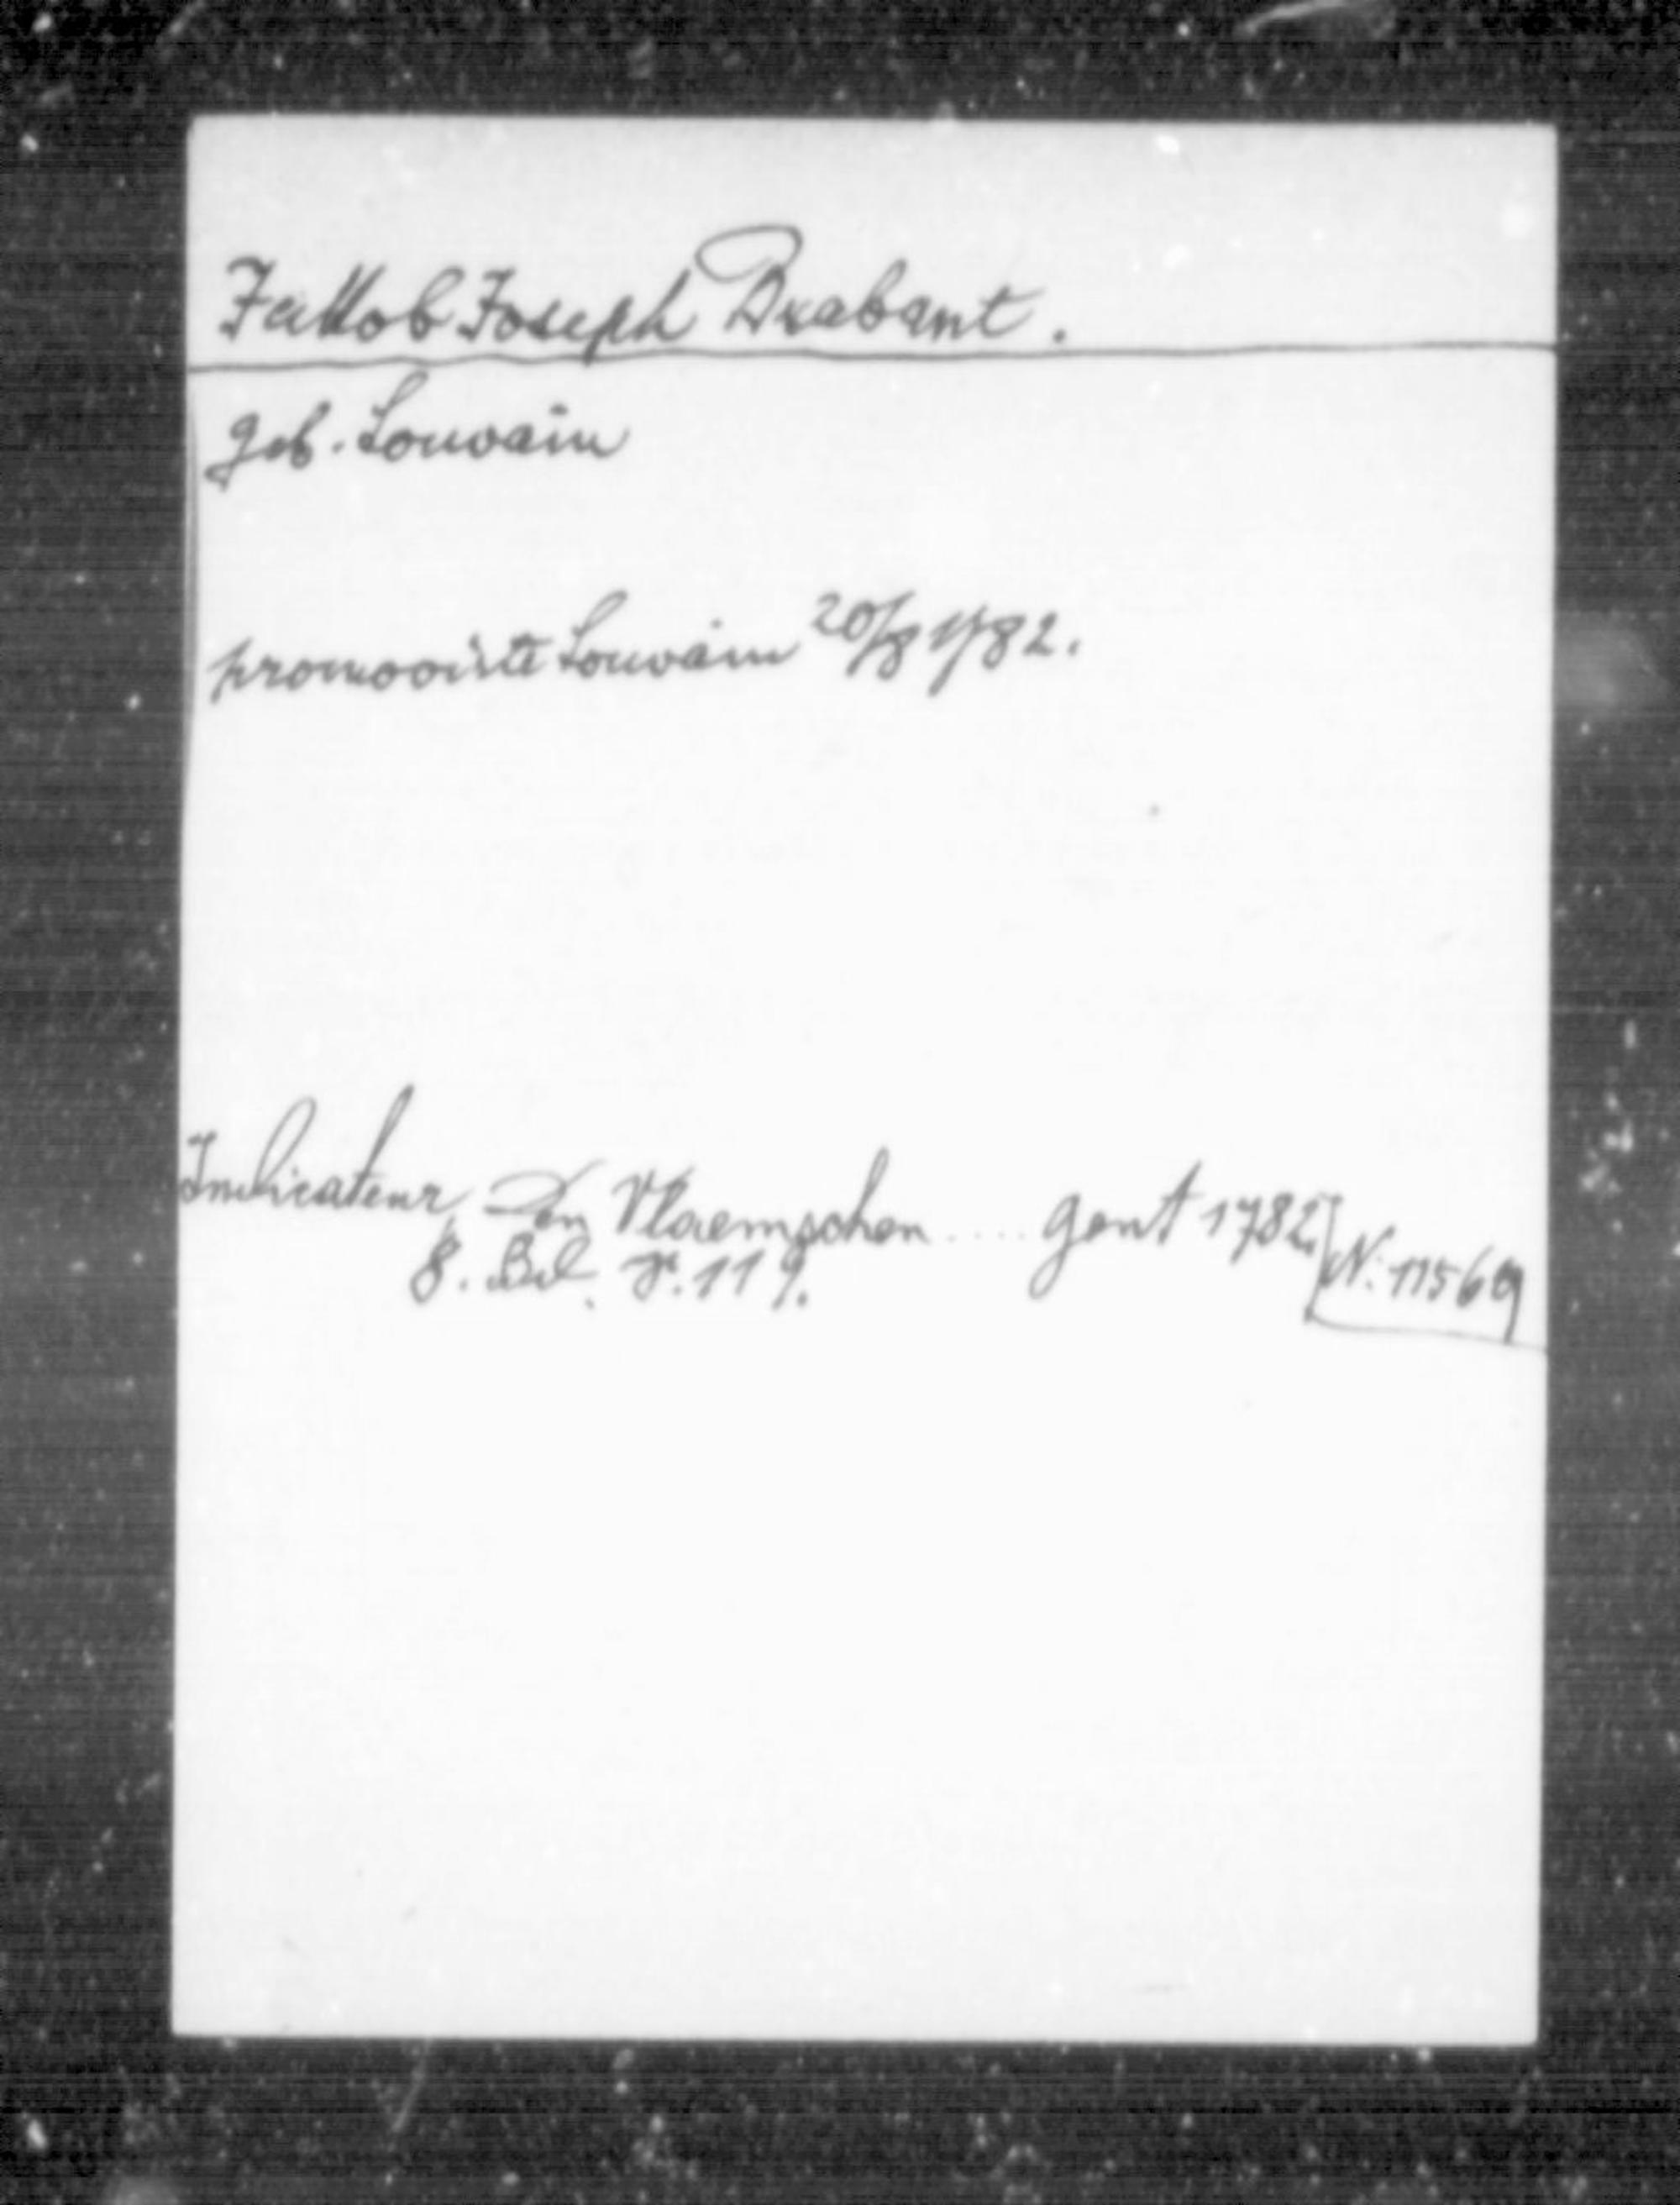 Jakob Joseph Brabant.
geb. Louvain
promovirte Louvain 20/8 1782.
Indicateur, Den Vlaemschen .... gent 1782. N: 11569
8. Bd. S. 119.